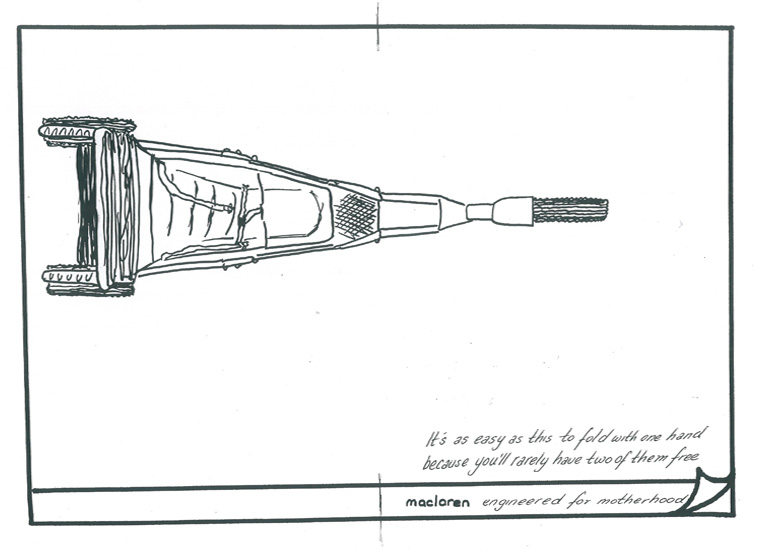 It's as easy as this to fold with one hand
because you'll rarely have two of them free
maclaren engineered for motherhood